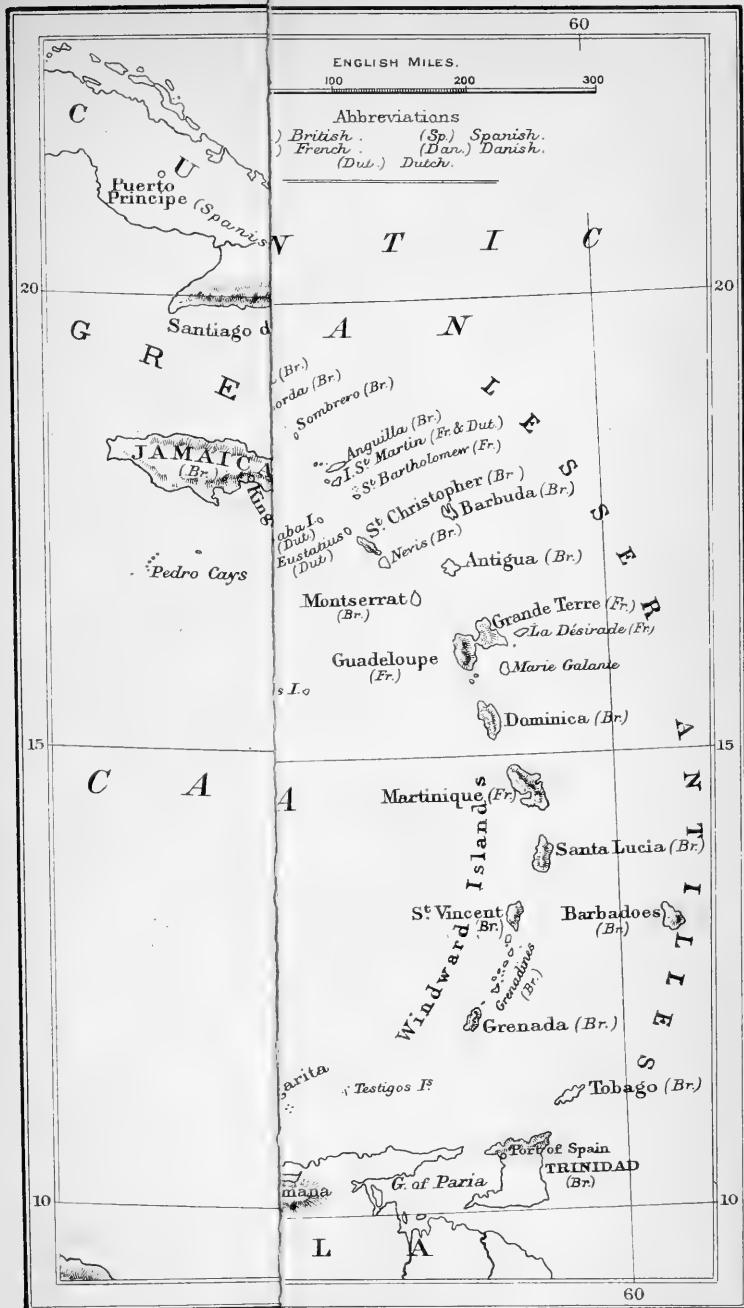 60
ENGLISH MILES.
100 200 300
Abbreviations
) British. (Sp.) Spanish.
) French. (Dan.) Danish.
(Dut.) Dutch.
C
U
Puerto
Principe (Spanis
N T I C
20 20
Santiago d
A N
G R E
(Br.)
orda (Br.)
Sombrero (Br.)
L E S S E R
Anguilla (Br.)
I. St. Martin (Fr. & Dut.)
St. Bartholomew (Fr.)
JAMAICA
(Br.)
King
St. Christopher (Br.)
Barbuda (Br.)
aba I.
(Dut.)
Eustatius
(Dut.)
Nevis (Br.)
Antigua (Br.)
Pedro Cays
Montserrat
(Br.)
Grande Terre (Fr.)
La Désirade (Fr.)
Guadeloupe
(Fr.)
Marie Galante
s I.
Dominica (Br.)
A N T I L L E S
15 15
C A A
Martinique (Fr.)
Windward Islands
Santa Lucia (Br.)
St. Vincent
(Br.)
Barbadoes
(Br.)
Grenadines
(Br.)
Grenada (Br.)
garita
Testigos Is.
Tobago (Br.)
Port of Spain
TRINIDAD
(Br.)
mana
G. of Paria
10 10
L A
60